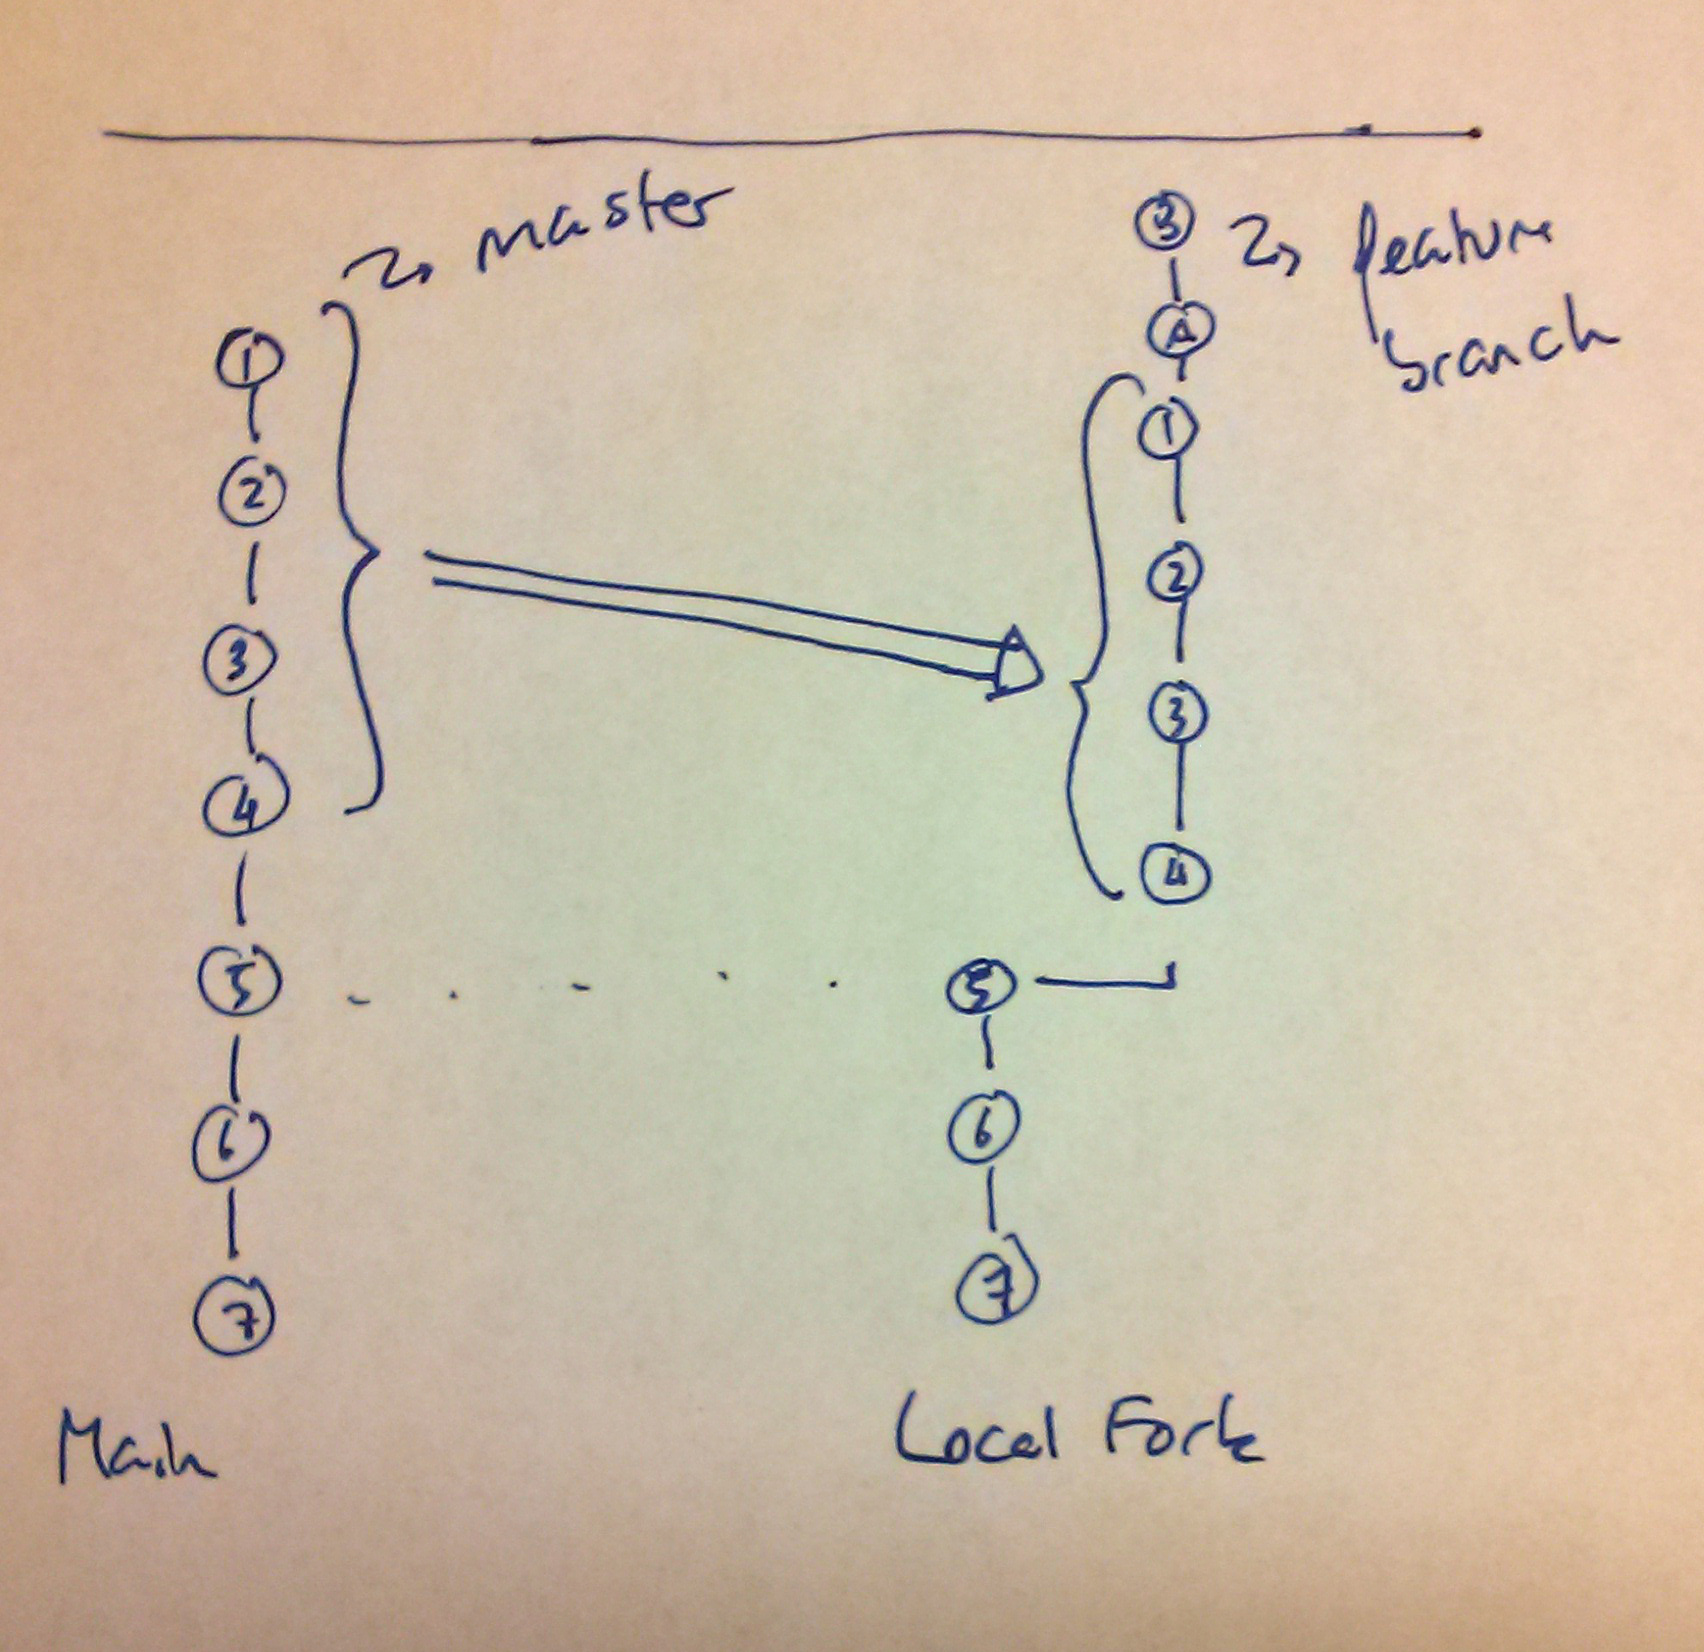 master
1
2
3
4
5
6
7
Main
feature
branch
B
A
1
2
3
4
5
6
7
Local Fork